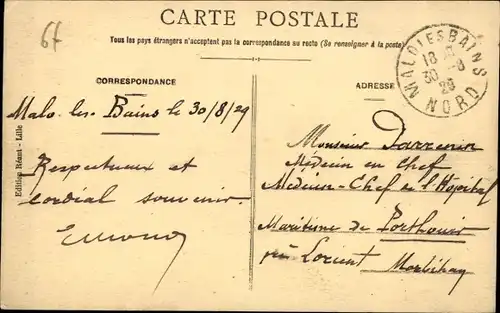 67
CARTE POSTALE
Tous les pays étrangers n'acceptent pas la correspondance au recto (Se renseigner à la poste)
CORRESPONDANCE
ADRESSE
MALO LES BAINS
18
30 -8
29
NORD
Malo-les-Bains le 30/8/29
Respectueux et
cordial souvenir
Edition Réant - Lille
Monsieur
Médecin en Chef
Médecin-Chef de l'Hôpital
Maritime de Porthouis
près Lorient
Morbihan